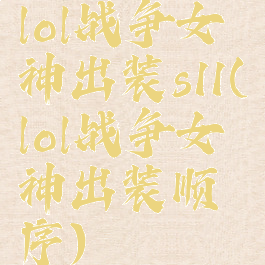 lol战争女
神出装s11(
lol战争女
神出装顺
序)